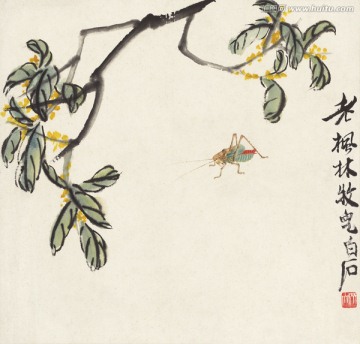 老楓林牧兒白石
www.huitu.com